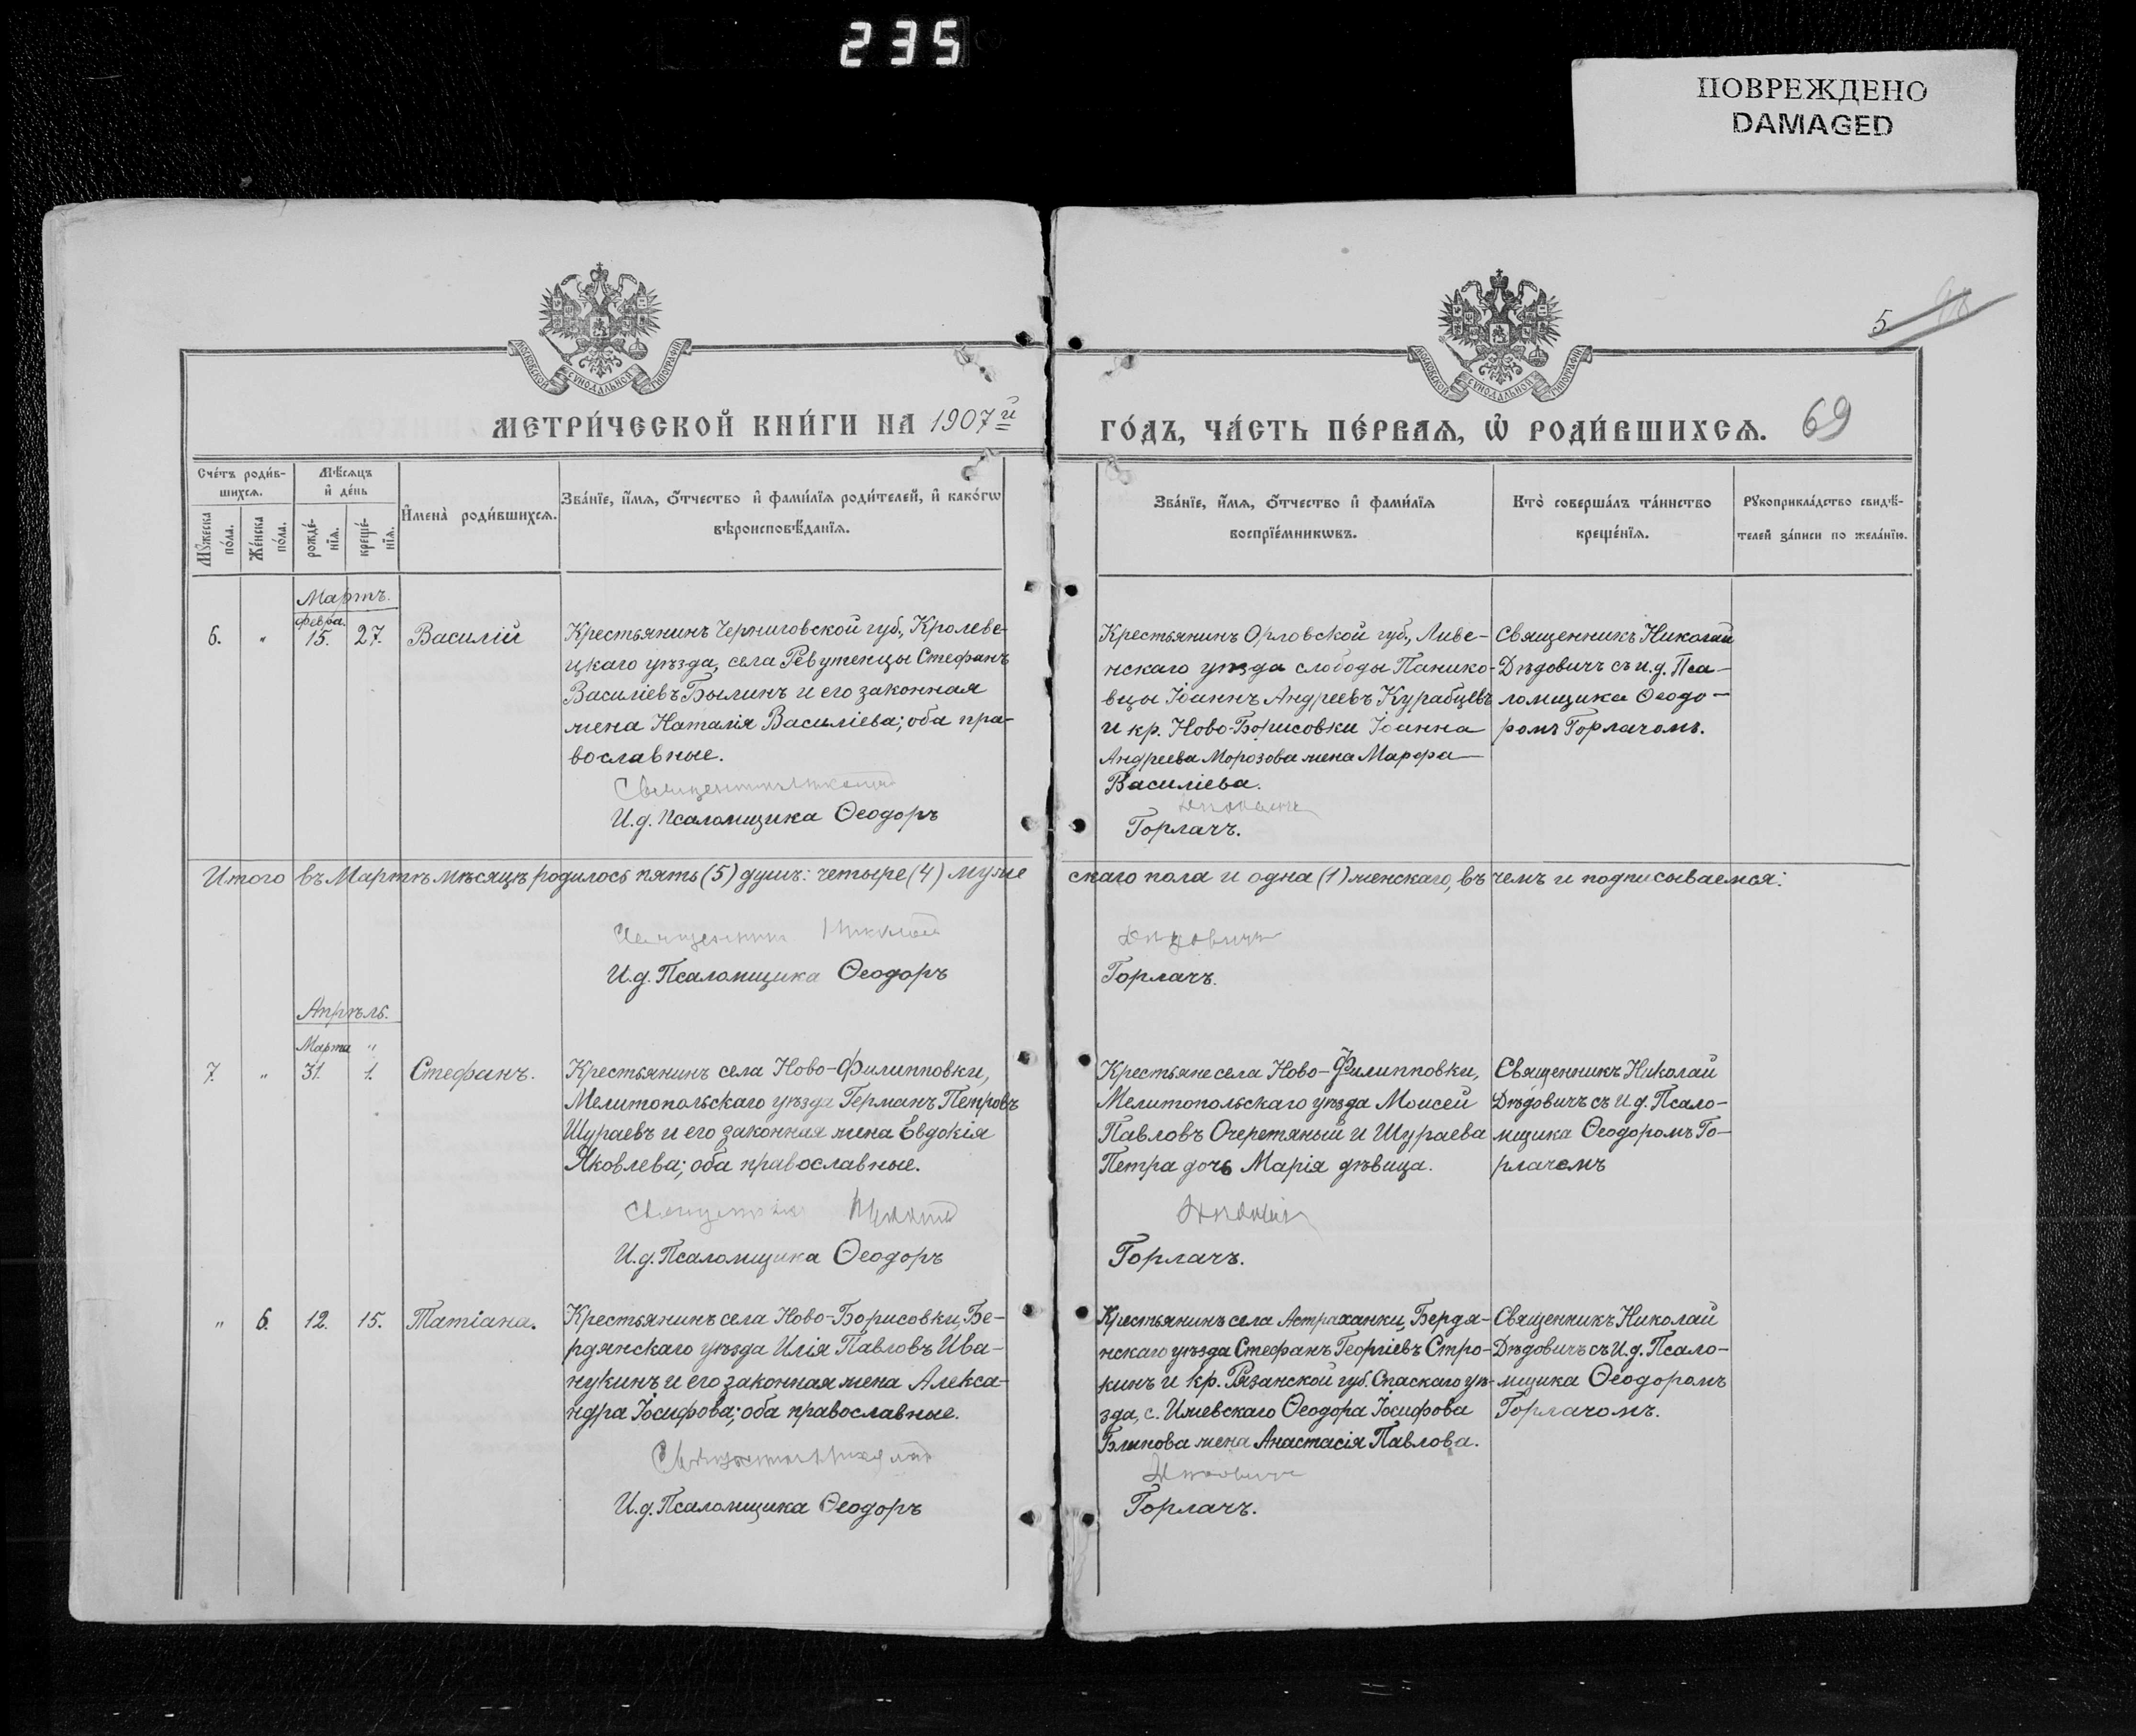 235
ПОВРЕЖДЕНО
DAMAGED
МОСКОВСКОЙ СѴНОДАЛЬНОЙ ТИПОГРАФІИ
МОСКОВСКОЙ СѴНОДАЛЬНОЙ ТИПОГРАФІИ
5
МЕТРИ́ЧЕСКОЙ КНИ́ГИ НА 1907й
ГО́ДЪ, ЧА́СТЬ ПЕ́РВАѦ, Ѡ҆ РОДИ́ВШИХСѦ. 69
Сче́тъ роди́в-
шихсѧ.
Мꙋ́жеска по́ла.
Же́нска по́ла.
Мѣ́сѧцъ
и҆ де́нь
рожде́-
нїѧ.
креще́-
нїѧ.
И҆мена̀ роди́вшихсѧ.
Зва́нїе, и҆́мѧ, ѻ҆́тчество и҆ фами́лїѧ роди́телей, и҆ како́гѡ
вѣроисповѣ́данїѧ.
Зва́нїе, и҆́мѧ, ѻ҆́тчество и҆ фами́лїѧ
воспрїе́мникѡвъ.
Кто̀ соверша́лъ та́инство
креще́нїѧ.
Рꙋкоприкла́дство свидѣ́-
телей за́писи по жела́нїю.
Мартъ.
Февра.
6. " 15. 27. Василій
Крестьянинъ Черниговской губ., Кролеве-
цкаго уѣзда, села Ревутенцы Стефанъ
Василіевъ Былинъ и его законная
жена Наталія Василіева; оба пра-
вославные.
Священникъ Николай
И.д. Псаломщика Ѳеодоръ
Крестьянинъ Орловской губ., Ливе-
нскаго уѣзда слободы Панико-
вцы Іоаннъ Андреевъ Курабцевъ
и кр. Ново-Борисовки Іоанна
Андреева Морозова жена Марѳа
Василіева.
Дѣдовичъ
Горлачъ.
Священникъ Николай
Дѣдовичъ съ и.д. Пса-
ломщика Ѳеодо-
ромъ Горлачомъ.
Итого въ Мартѣ мѣсяцѣ родилось пять (5) душъ: четыре (4) муже
скаго пола и одна (1) женскаго, въ чемъ и подписываемся:
Священникъ Николай
Дѣдовичъ
И.д. Псаломщика Ѳеодоръ
Горлачъ.
Апрѣль.
Марта "
7. " 31. 1. Стефанъ.
Крестьянинъ села Ново-Филипповки,
Мелитопольскаго уѣзда Германъ Петровъ
Шураевъ и его законная жена Евдокія
Яковлева; оба православные.
Священникъ Николай
И.д. Псаломщика Ѳеодоръ
Крестьяне села Ново-Филипповки,
Мелитопольскаго уѣзда Моисей
Павловъ Очеретяный и Шураева
Петра дочь Марія дѣвица.
Дѣдовичъ
Горлачъ.
Священникъ Николай
Дѣдовичъ съ И.д. Псало-
мщика Ѳеодоромъ Го-
рлачемъ
" 6. 12. 15. Татіана.
Крестьянинъ села Ново-Борисовки, Бе-
рдянскаго уѣзда Илія Павловъ Ива-
нукинъ и его законная жена Алекса-
ндра Іосифова; оба православные.
Священникъ Николай
И.д. Псаломщика Ѳеодоръ
Крестьянинъ села Астраханки, Бердя-
нскаго уѣзда Стефанъ Георгіевъ Стро-
кинъ и кр. Рязанской губ. Спаскаго уѣ-
зда, с. Ижевскаго Ѳеодора Іосифова
Блинова жена Анастасія Павлова.
Дѣдовичъ
Горлачъ.
Священникъ Николай
Дѣдовичъ съ И.д. Псало-
мщика Ѳеодоромъ
Горлачомъ.